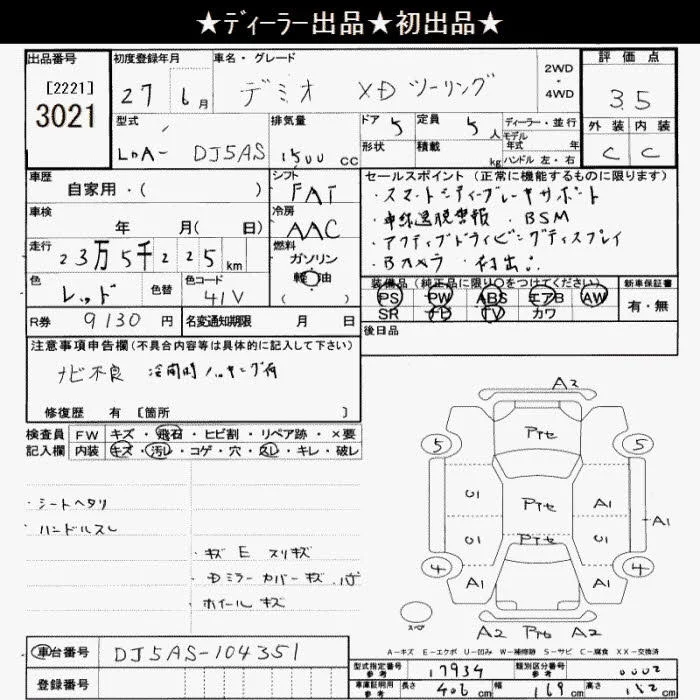 ★ディーラー出品★初出品★
出品番号
[2221]
3021
初度登録年月
27 6月
車名・グレード
デミオ XDツーリング
2WD
・
4WD
評価点
3.5
外装 内装
C C
型式
LDA- DJ5AS
排気量
1500 CC
ドア 5
定員 5人
ディーラー・並行
モデル
年式 年
形状
積載 kg
ハンドル 左・右
車歴
自家用・( )
シフト
FAT
セールスポイント(正常に機能するものに限ります)
・スマートシティブレーキサポート
・車線逸脱警報 ・BSM
・アクティブドライビングディスプレイ
・Bカメラ
車検
年 月( 日)
冷房
AAC
走行
23万5千225km
燃料
ガソリン
軽油
( )
色
レッド
色替
色コード
41V
装備品(純正品に限り○をつけてください)
PS PW ABS エアB AW
SR ナビ TV カワ
新車保証書
有・無
R券 9130円
名変通知期限 月 日
後日品
注意事項申告欄(不具合内容等は具体的に記入して下さい)
ナビ不良 冷間時ノッキング有
修復歴 有 [箇所 ]
検査員
記入欄
FW キズ・飛石・ヒビ割・リペア跡・×要
内装 キズ・汚レ・コゲ・穴・スレ・キレ・破レ
・シートヘタリ
・ハンドルスレ
・キズ E スリキズ
・Dミラーカバーキズ
・ホイールキズ
A2
Pセ
5 5
U1 Pセ A1
A1
U1 Pセ A1
4 4
A1 A1
Pセ
スペア
A2 Pセ A2
A−キズ E−エクボ U−凹み W−補修跡 S−サビ C−腐食 XX−交換済
車台番号 DJ5AS-104351
登録番号
型式指定番号
参考
17934
類別区分番号
参考
0002
車庫証明用
参考
長さ 406cm 幅 169cm 高さ cm